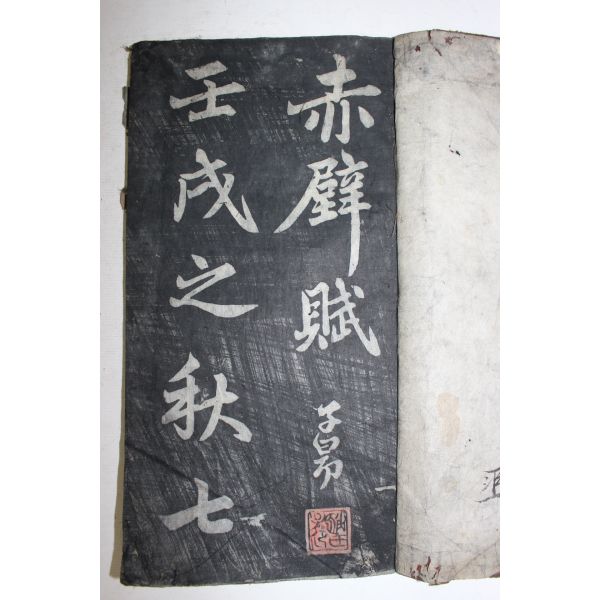 赤壁賦
子昂
壬戌之秋七